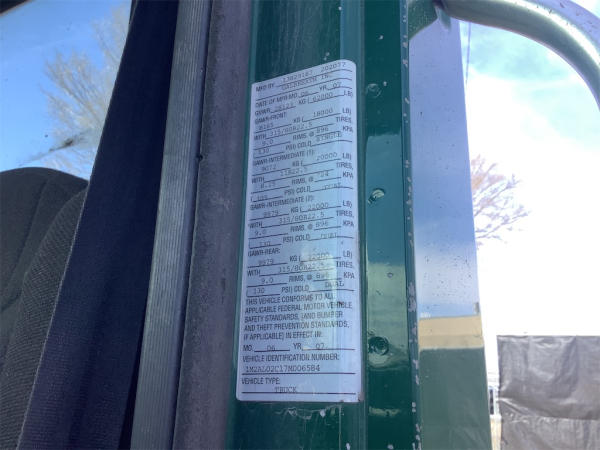 13829187 202077
MFG BY GALBREATH INC.
DATE OF MFR-MO. 06 YR. 07
GVWR 28123 KG ( 62000 LB)
GAWR-FRONT:
8165 KG ( 18000 LB)
WITH 315/80R22.5 TIRES,
9.0 RIMS, @ 896 KPA
( 130 PSI) COLD SINGLE
GAWR-INTERMEDIATE (1):
9072 KG ( 20000 LB)
WITH 11R22.5 TIRES,
8.25 RIMS, @ 724 KPA
( 105 PSI) COLD DUAL
GAWR-INTERMEDIATE (2):
9979 KG ( 22000 LB)
WITH 315/80R22.5 TIRES,
9.0 RIMS, @ 896 KPA
( 130 PSI) COLD DUAL
GAWR-REAR:
9979 KG ( 22000 LB)
WITH 315/80R22.5 TIRES,
9.0 RIMS, @ 896 KPA
( 130 PSI) COLD DUAL
THIS VEHICLE CONFORMS TO ALL
APPLICABLE FEDERAL MOTOR VEHICLE
SAFETY STANDARDS, (AND BUMPER
AND THEFT PREVENTION STANDARDS,
IF APPLICABLE) IN EFFECT IN:
MO. 06 YR. 07
VEHICLE IDENTIFICATION NUMBER:
1M2AL02C17M006584
VEHICLE TYPE:
TRUCK